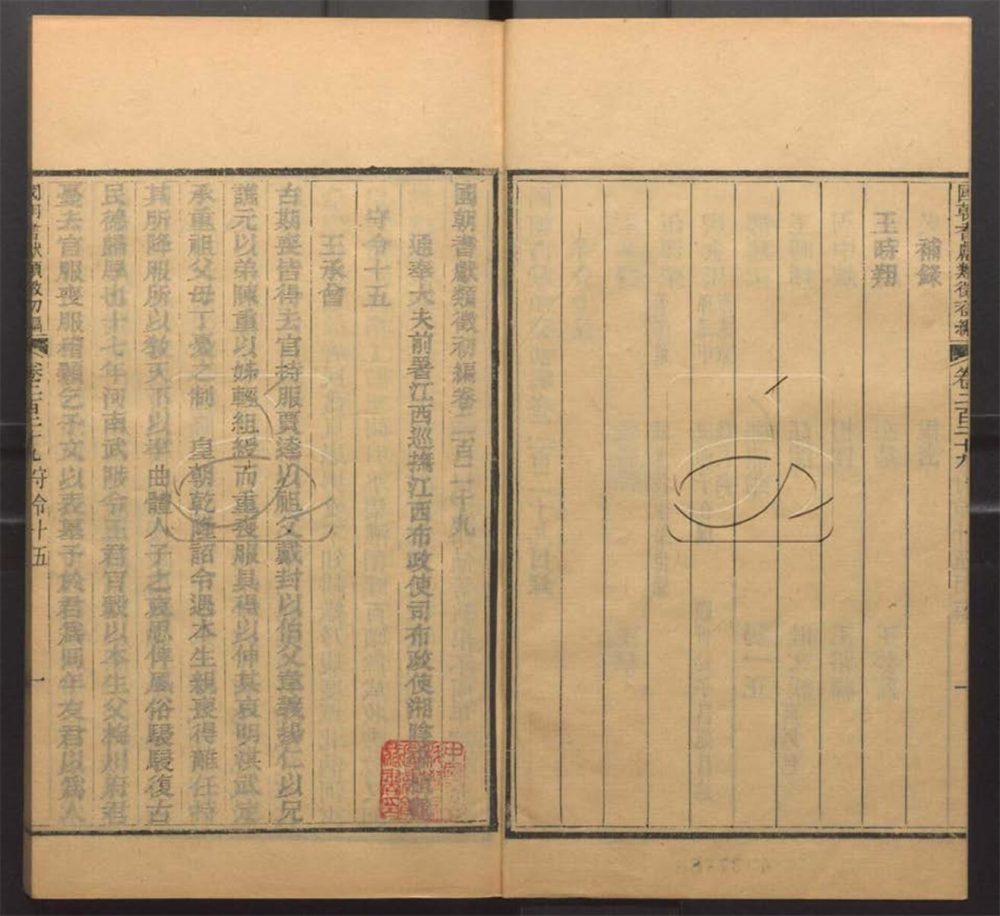 國朝耆獻類徵初編 卷二百二十九
補錄
王時翔
一
國朝耆獻類徵初編卷二百二十九
通奉大夫前署江西巡撫江西布政使司布政使湘陰李桓輯
守令十五
王承會
古期喪皆得去官持服賈逵以祖父戴封以伯父韋義楊仁以兄
譙元以弟陳重以姊輕組綬而重喪服具得以伸其哀明洪武定
承重祖父母丁憂之制 皇朝乾隆詔令遇本生親喪得離任持
其所降服所以教天下以孝曲體人子之哀思俾風俗駸駸復古
民德歸厚也十七年河南武陟令王君官毅以本生父梅川府君
憂去官服喪服稽顙乞予文以表墓予於君為同年友君以為人
國朝耆獻類徵初編 卷二百二十九 守令十五
一